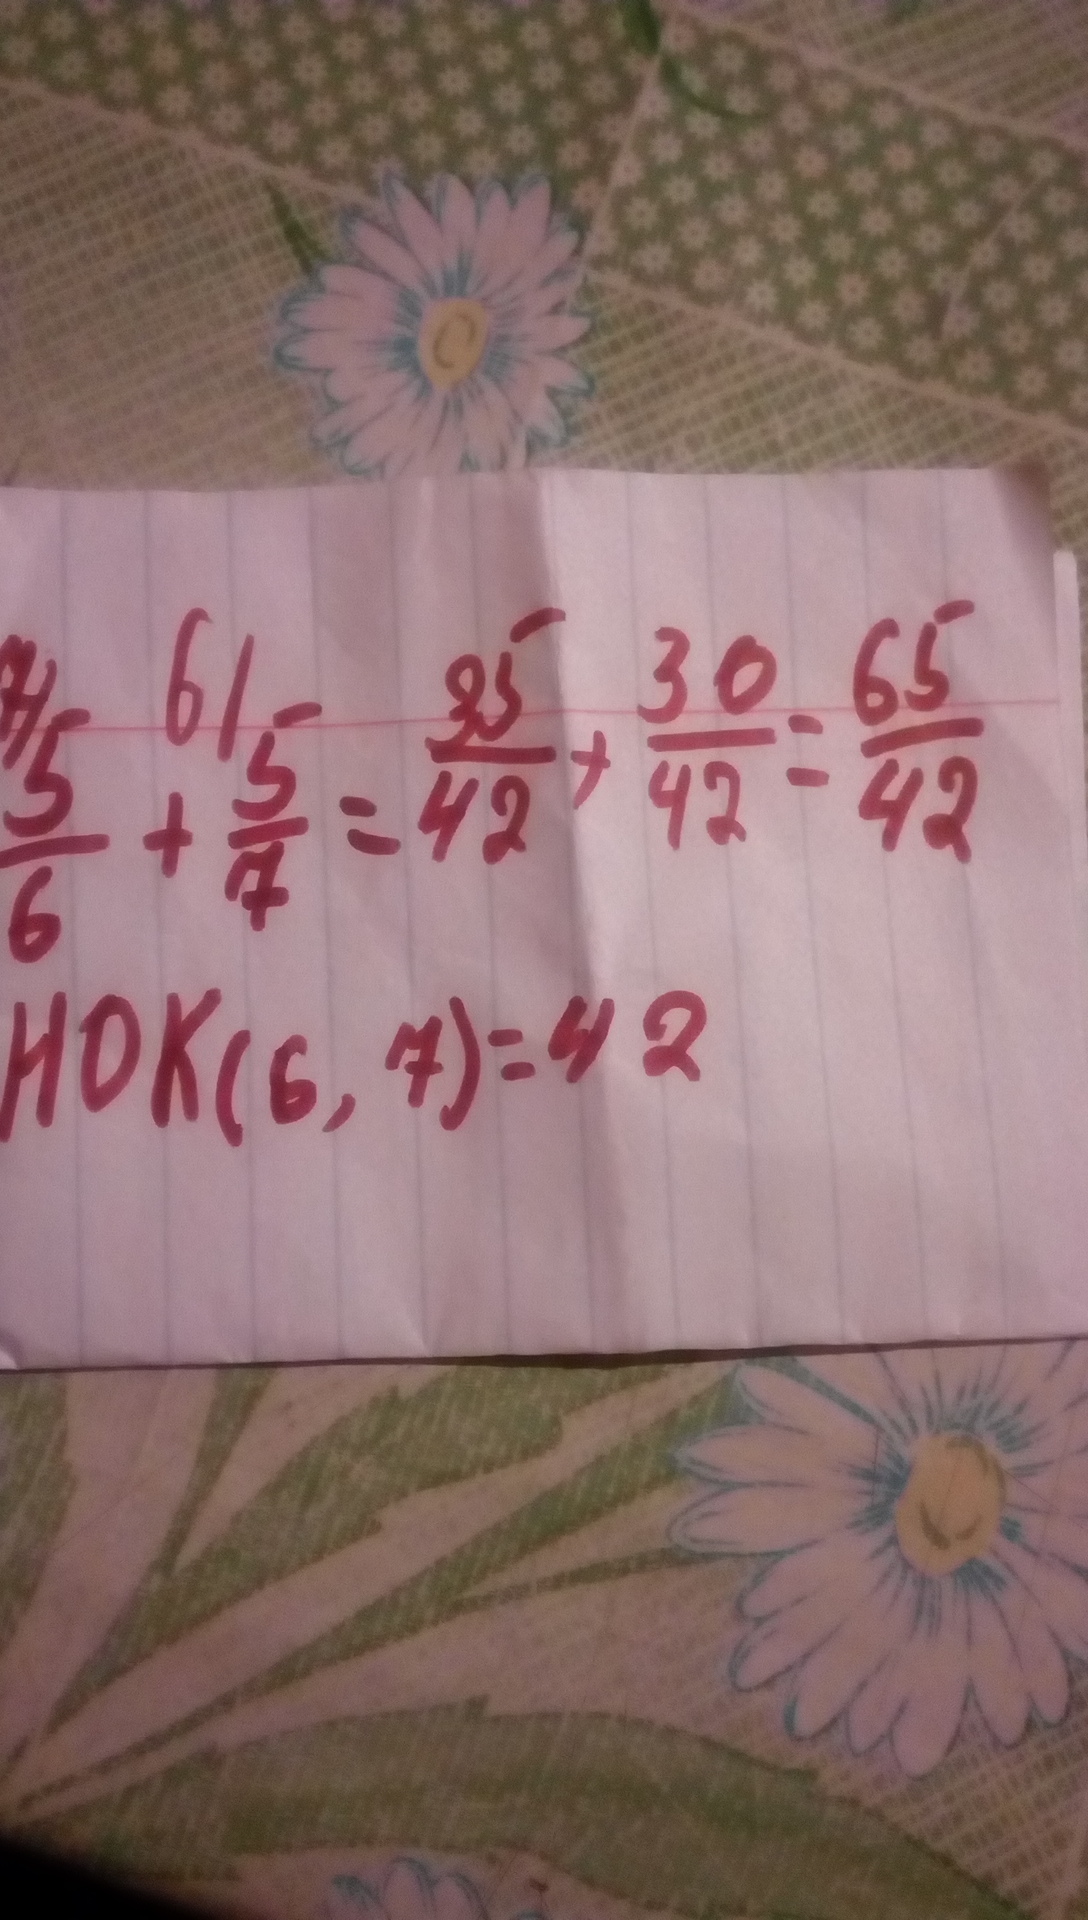 7/5/6 + 6/5/7 = 35/42 + 30/42 = 65/42
НОК(6, 7)=42